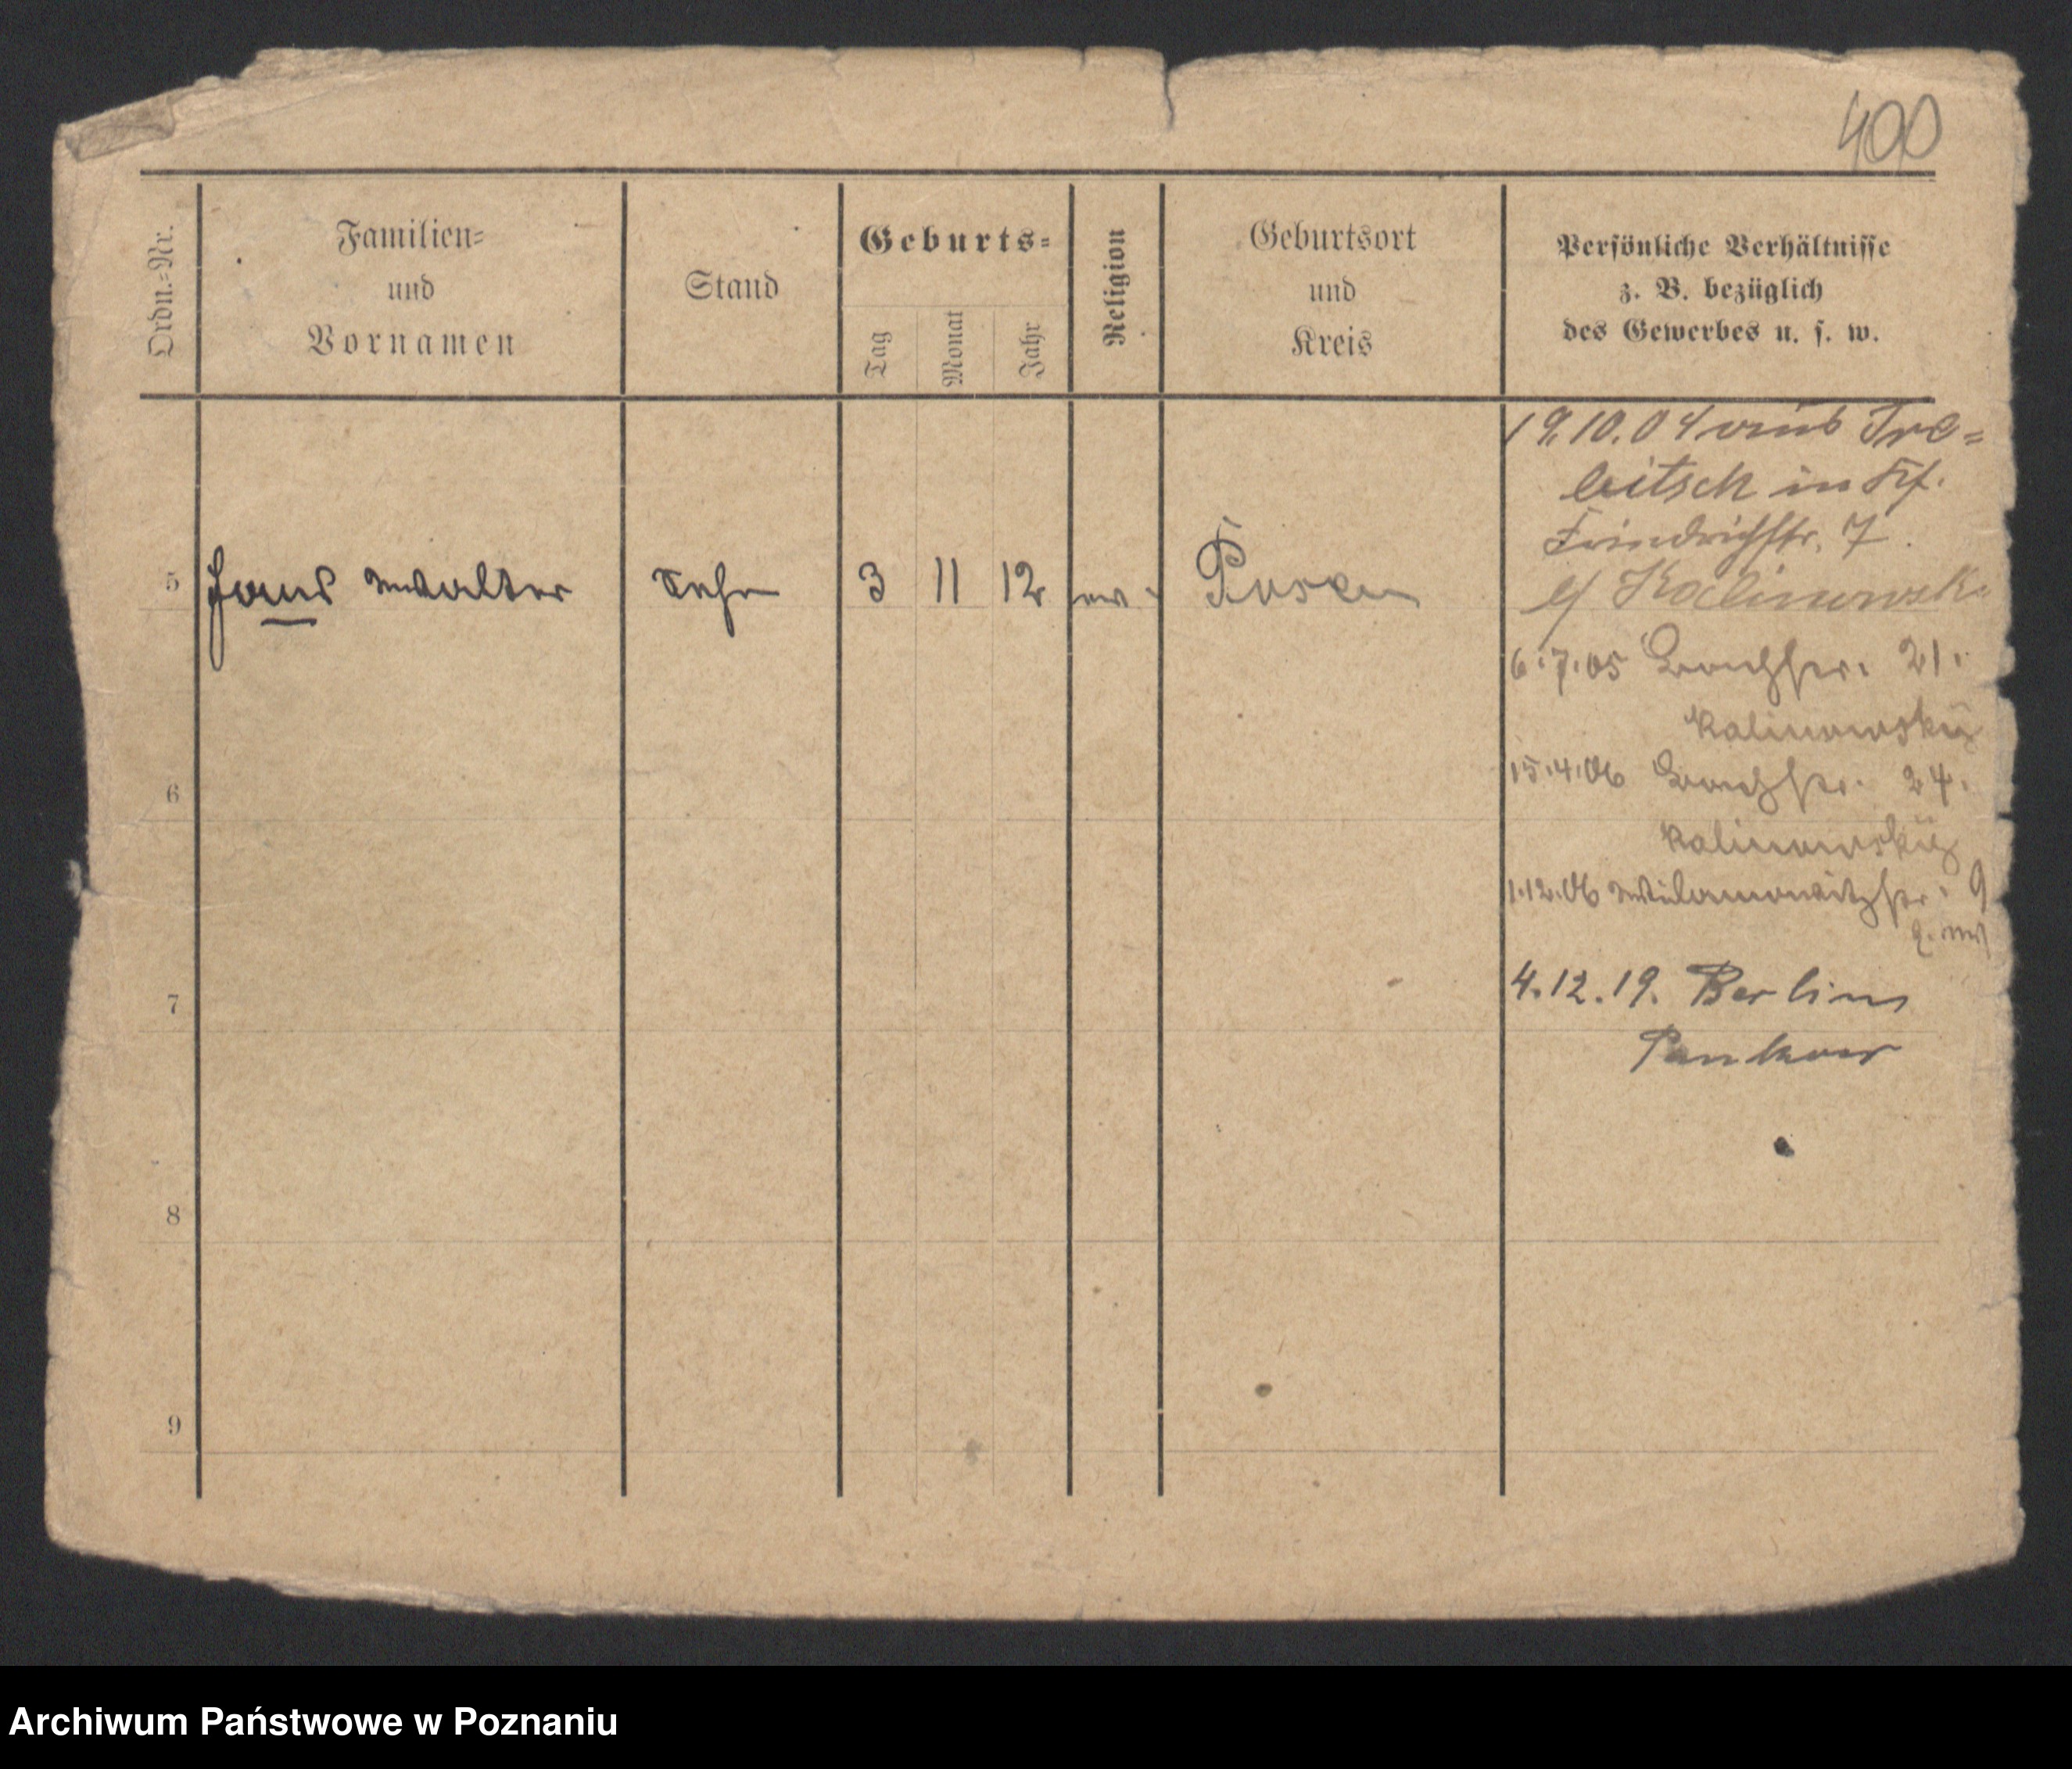 400
Ordn.=Nr.
Familien=
und
Vornamen
Stand
Geburts=
Tag
Monat
Jahr
Religion
Geburtsort
und
Kreis
Persönliche Verhältnisse
z. B. bezüglich
des Gewerbes u. s. w.
19.10.04 aus Tre=
bitsch in Kf.
Friedrichstr. 7.
b/ Kalinowski
5 Hans Walter Sohn 3 11 12 ev. Posen
6.7.05 21.
Kalinowski
15.4.06 24.
Kalinowski
6
1.12.06 Wilamowitzstr. 9
4.12.19. Berlin
7
Pankow
8
9
Archiwum Państwowe w Poznaniu